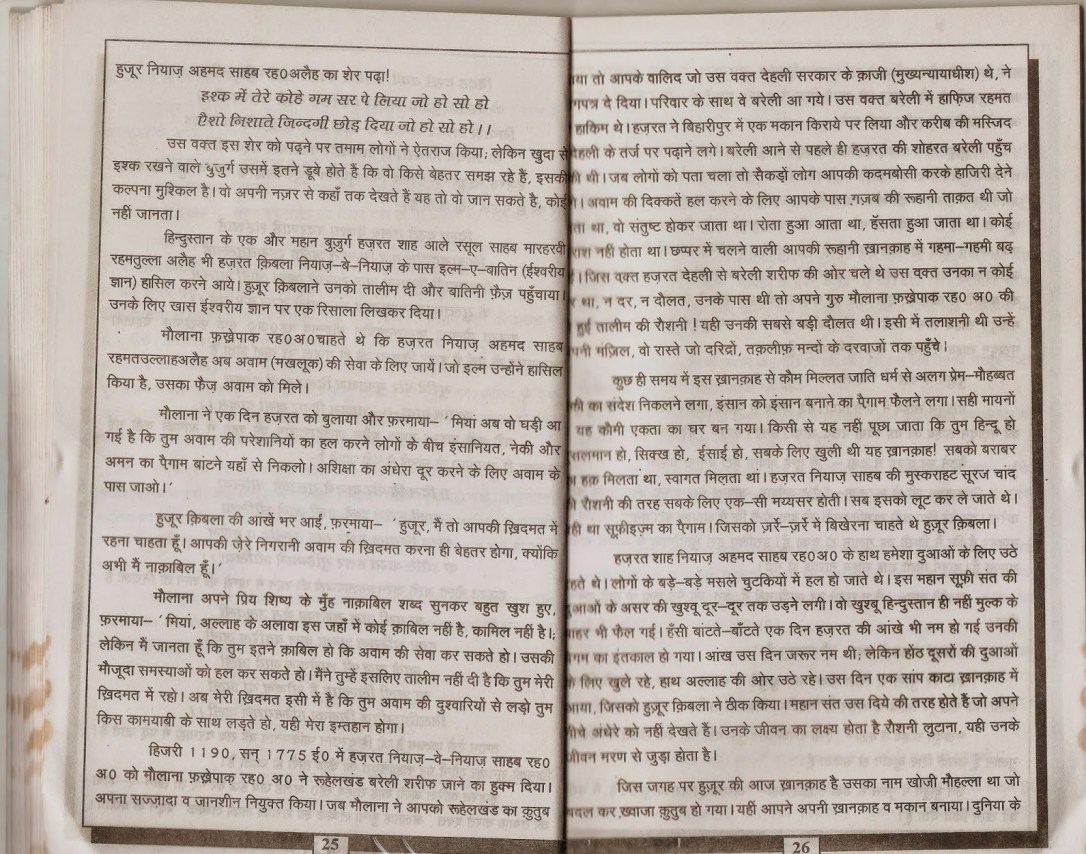 हुजूर नियाज़ अहमद साहब रह0अलैह का शेर पढ़ा!
इश्क में तेरे कोहे गम सर पे लिया जो हो सो हो
ऐशो निशाते जिन्दगी छोड़ दिया जो हो सो हो।।
उस वक्त इस शेर को पढ़ने पर तमाम लोगों ने ऐतराज किया; लेकिन खुदा से
इश्क रखने वाले बुजुर्ग उसमें इतने डूबे होते हैं कि वो किसे बेहतर समझ रहे हैं, इसकी
कल्पना मुश्किल है। वो अपनी नज़र से कहाँ तक देखते हैं यह तो वो जान सकते है, कोई
नहीं जानता।
हिन्दुस्तान के एक और महान बुज़ुर्ग हज़रत शाह आले रसूल साहब मारहरवी
रहमतुल्ला अलैह भी हज़रत क़िबला नियाज़–बे–नियाज़ के पास इल्म–ए–बातिन (ईश्वरीय
ज्ञान) हासिल करने आये। हुज़ूर क़िबलाने उनको तालीम दी और बातिनी फ़ैज़ पहुँचाया।
उनके लिए खास ईश्वरीय ज्ञान पर एक रिसाला लिखकर दिया।
मौलाना फ़ख्रेपाक रह0अ0चाहते थे कि हज़रत नियाज़ अहमद साहब
रहमतउल्लाहअलैह अब अवाम (मखलूक) की सेवा के लिए जायें। जो इल्म उन्होंने हासिल
किया है, उसका फैज़ अवाम को मिले।
मौलाना ने एक दिन हज़रत को बुलाया और फ़रमाया– ‘मियां अब वो घड़ी आ
गई है कि तुम अवाम की परेशानियों का हल करने लोगों के बीच इंसानियत, नेकी और
अमन का पैगाम बांटने यहाँ से निकलो। अशिक्षा का अंधेरा दूर करने के लिए अवाम के
पास जाओ।’
हुजूर क़िबला की आंखें भर आई, फ़रमाया– ‘हुजूर, मैं तो आपकी ख़िदमत में
रहना चाहता हूँ। आपकी ज़ेरे निगरानी अवाम की ख़िदमत करना ही बेहतर होगा, क्योंकि
अभी मैं नाक़ाबिल हूँ।’
मौलाना अपने प्रिय शिष्य के मुँह नाक़ाबिल शब्द सुनकर बहुत खुश हुए,
फ़रमाया– ‘मियां, अल्लाह के अलावा इस जहाँ में कोई क़ाबिल नहीं है, कामिल नहीं है।;
लेकिन मैं जानता हूँ कि तुम इतने क़ाबिल हो कि अवाम की सेवा कर सकते हो। उसकी
मौजूदा समस्याओं को हल कर सकते हो। मैंने तुम्हें इसलिए तालीम नहीं दी है कि तुम मेरी
ख़िदमत में रहो। अब मेरी ख़िदमत इसी में है कि तुम अवाम की दुश्वारियों से लड़ो तुम
किस कामयाबी के साथ लड़ते हो, यही मेरा इम्तहान होगा।
हिजरी 1190, सन् 1775 ई0 में हज़रत नियाज–वे–नियाज़ साहब रह0
अ0 को मौलाना फ़ख्रेपाक़ रह0 अ0 ने रूहेलखंड बरेली शरीफ जाने का हुक्म दिया।
अपना सज्ज़ादा व जानशीन नियुक्त किया। जब मौलाना ने आपको रूहेलखंड का क़ुतुब
25
तो आपके वालिद जो उस वक्त देहली सरकार के क़ाजी (मुख्यन्यायाधीश) थे, ने
दे दिया। परिवार के साथ वे बरेली आ गये। उस वक्त बरेली में हाफिज़ रहमत
हाकिम थे। हज़रत ने बिहारीपुर में एक मकान किराये पर लिया और करीब की मस्जिद
देहली के तर्ज पर पढ़ाने लगे। बरेली आने से पहले ही हज़रत की शोहरत बरेली पहुँच
थी। जब लोगों को पता चला तो सैकड़ों लोग आपकी कदमबोसी करके हाजिरी देने
। अवाम की दिक्कतें हल करने के लिए आपके पास गज़ब की रूहानी ताक़त थी जो
था, वो संतुष्ट होकर जाता था। रोता हुआ आता था, हँसता हुआ जाता था। कोई
नही होता था। छप्पर में चलने वाली आपकी रूहानी ख़ानक़ाह में गहमा–गहमी बढ़
। जिस वक्त हज़रत देहली से बरेली शरीफ की ओर चले थे उस वक्त उनका न कोई
था, न दर, न दौलत, उनके पास थी तो अपने गुरु मौलाना फ़ख्रेपाक रह0 अ0 की
हुई तालीम की रौशनी ! यही उनकी सबसे बड़ी दौलत थी। इसी में तलाशनी थी उन्हें
मंज़िल, वो रास्ते जो दरिद्रों, तक़लीफ़ मन्दों के दरवाजों तक पहुँचे।
कुछ ही समय में इस ख़ानक़ाह से कौम मिल्लत जाति धर्म से अलग प्रेम–मौहब्बत
का संदेश निकलने लगा, इंसान को इंसान बनाने का पैग़ाम फैलने लगा। सही मायनों
यह कौमी एकता का घर बन गया। किसी से यह नही पूछा जाता कि तुम हिन्दू हो
हो, सिक्ख हो, ईसाई हो, सबके लिए खुली थी यह ख़ानक़ाह! सबको बराबर
हक़ मिलता था, स्वागत मिलता था। हज़रत नियाज़ साहब की मुस्कराहट सूरज चांद
रौशनी की तरह सबके लिए एक–सी मय्यसर होती। सब इसको लूट कर ले जाते थे।
था सूफ़ीइज़्म का पैगाम। जिसको ज़र्रे–ज़र्रे में बिखेरना चाहते थे हुज़ूर क़िबला।
हज़रत शाह नियाज़ अहमद साहब रह0अ0 के हाथ हमेशा दुआओं के लिए उठे
थे। लोगों के बड़े–बड़े मसले चुटकियों में हल हो जाते थे। इस महान सूफ़ी संत की
के असर की खुश्वू दूर–दूर तक उड़ने लगी। वो खुश्बू हिन्दुस्तान ही नहीं मुल्क के
भी फैल गई। हँसी बांटते–बाँटते एक दिन हज़रत की आंखे भी नम हो गई उनकी
का इंतकाल हो गया। आंख उस दिन जरूर नम थी; लेकिन होंठ दूसरों की दुआओं
लिए खुले रहे, हाथ अल्लाह की ओर उठे रहे। उस दिन एक सांप काटा ख़ानक़ाह में
, जिसको हुज़ूर क़िबला ने ठीक किया। महान संत उस दिये की तरह होते हैं जो अपने
अंधेरे को नही देखते हैं। उनके जीवन का लक्ष्य होता है रौशनी लुटाना, यही उनके
जीवन मरण से जुड़ा होता है।
जिस जगह पर हुज़ूर की आज ख़ानक़ाह है उसका नाम खोजी मौहल्ला था जो
कर ख़्वाजा क़ुतुब हो गया। यहीं आपने अपनी ख़ानक़ाह व मकान बनाया। दुनिया के
26